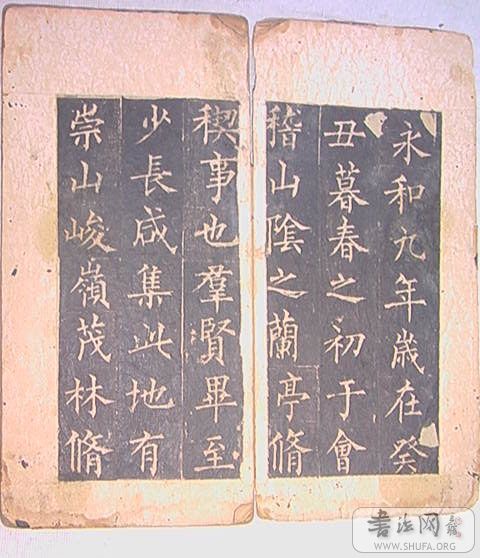 永和九年歲在癸
丑暮春之初于會
稽山陰之蘭亭脩
稧事也羣賢畢至
少長咸集此地有
崇山峻嶺茂林脩
书法网
WWW.SHUFA.ORG